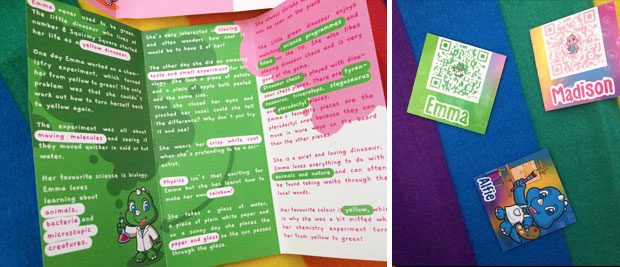 Emma never used to be green.
The little dinosaur who lives at
number 8 Squirmy Square started
her life as a yellow dinosaur!
One day Emma worked on a chem-
istry experiment, which turned
her from yellow to green! The only
problem was that she couldn't
work out how to turn herself back
to yellow again.
The experiment was all about
moving molecules and seeing if
they moved quicker in cold or hot
water.
Her favourite science is biology.
Emma loves
learning about
animals,
bacteria and
microscopic
creatures.
She's very interested in
and often wonders how cool it
would be to have 5 of her!
The other day she did an amazing
taste and smell experiment for
She took a piece of potato
and a piece of apple both peeled
and the same size.
Then she closed her eyes and
pinched her nose. Could she
the difference? Why don't you try
it and see!
She wears her crisp white coat
when she's pretending to be a sci-
entist.
Physics isn't that exciting for
Emma but she has learnt how to
make her own rainbow!
She takes a glass of water,
a piece of plain white paper and
on a sunny day she places the
paper and glass so the sun passes
through the glass.
She always
can be seen on the
The little green dinosaur enjoys
watching science programmes and
films on the TV. She also likes
playing dinosaur chess and is very
good at the game.
Dinosaur chess is played with dino-
saur chess pieces. There are tyran-
nosaurus, triceratops, stegosaurus
and pterodactyl pieces.
Emma's favourite pieces are the
pterodactyl ones because they can
move in more ways on the board
than the other pieces.
She is a quiet and loving dinosaur.
Emma loves everything to do with
animals and nature and can often
be found taking walks through the
local woods.
Her favourite colour is yellow, which
is why she was a bit miffed when
her chemistry experiment turned
her from yellow to green!
Emma
Madison
Alfie